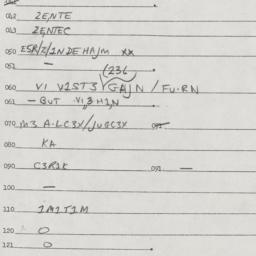 042 ZENTE
043 ZENTEC
050 ESR/Z/1NDEHAJM XX
051 —
(236
060 VI V1ST3 GAJN / FU·RN
061 — BUT VI,3 H1,N
070 M3 A·LC3X/JU2C3X
08 KA
090 C3R1K 091 —
100 —
110 1M1T1M
120 O
121 O